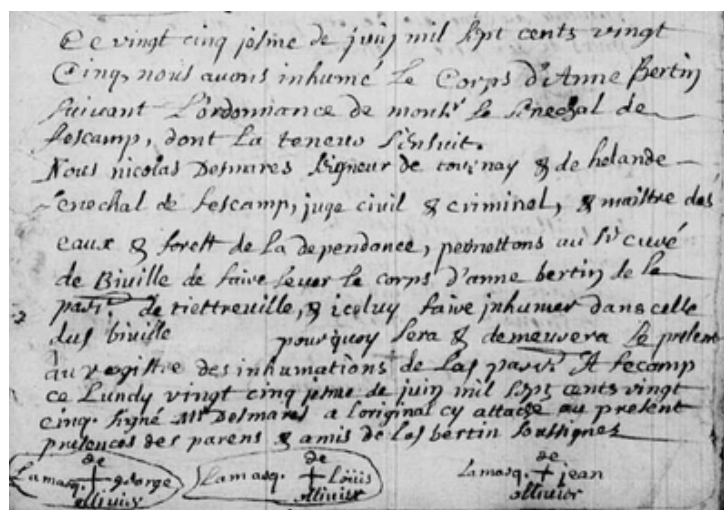 Ce vingt cinq jesme de juin mil sept cents vingt
Cinq, nous avons inhumé le Corps d'Anne Bertin
suivant L'ordonnance de monsr le senechal de
fescamp, dont la teneur s'ensuit.
Nous nicolas Desmares seigneur de & de helande
senechal de fescamp, juge civil & criminel, & maistre des
eaux & forest de la dependance, permettons au sr curé
de Biville de faire lever le corps d'anne bertin de la
parr. de tiettreville, & iceluy faire inhumer dans celle
dud biville pourquoy sera & demeurera le present
au registre des inhumations de lad parr. A fecamp
ce Lundy vingt cinq jesme de juin mil sept cents vingt
cinq. signé Mr Desmares a l'original cy attaché au present
presences des parens & amis de lad bertin soussignes
de de de
Lamarq. + george Lamarq. + Loüis Lamarq. + jean
ollivier ollivier ollivier